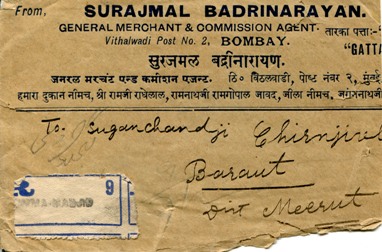 From,
SURAJMAL BADRINARAYAN.
GENERAL MERCHANT & COMMISSION AGENT.
तारका पत्ता:-"
Vithalwadi Post No. 2, BOMBAY.
"GATTA
सुरजमल बद्रीनारायण.
जनरल मरचंट एन्ड कमीशन एजन्ट. ठि० बिठ्ठलवाडी, पोष्ट नंबर २, मुंबई
हमारा दुकान नीमच, श्री रामजी राधेलाल, रामनाथजी रामगोपाल जावद, जीला नीमच,
To, Suganchandji Chirnjivl
Baraut
Dist Meerut
9